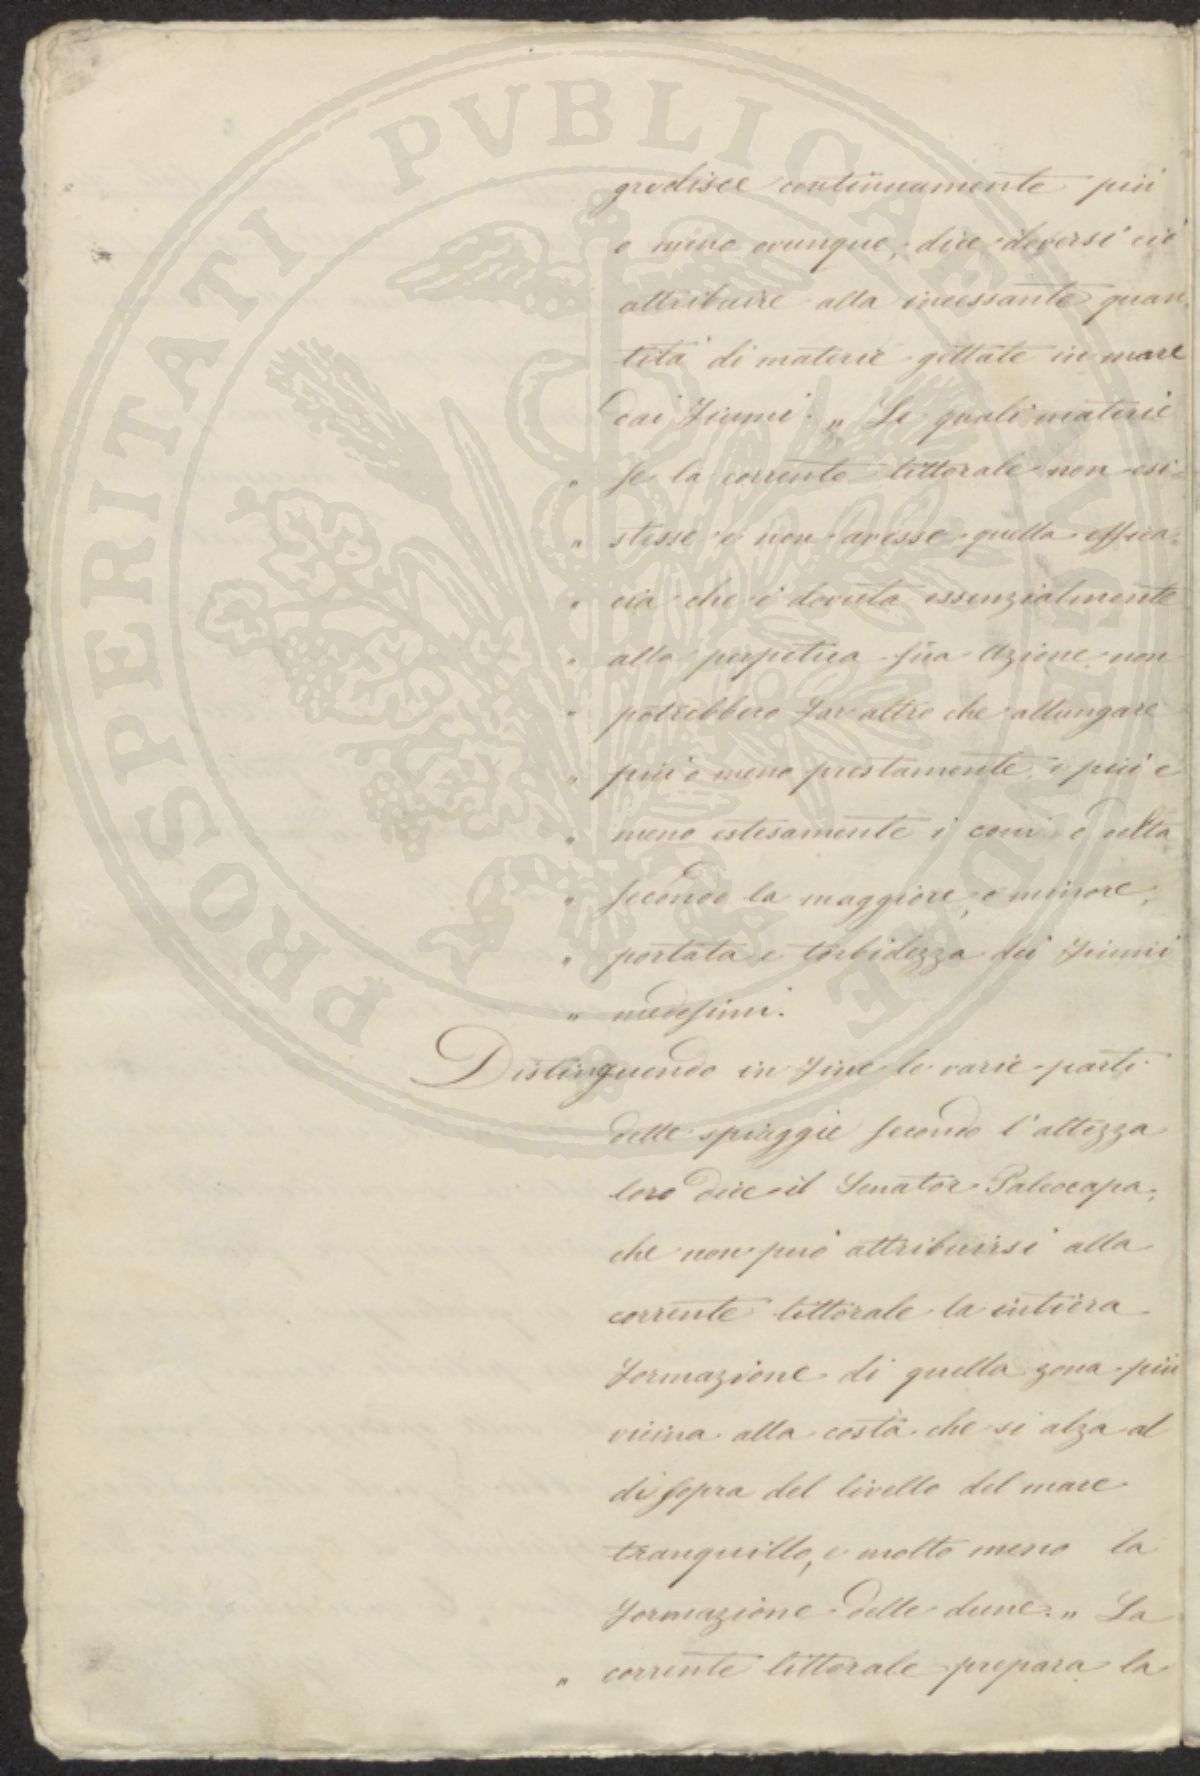 grodisce continuamente più
o meno ovunque, dice doversi ciò
attribuire alla incessante quan,
tità di materie gettate in mare
dai fiumi. „ Le quali materie
„ se la corrente littorale non esi=
„ stesse e non avesse quella effica=
„ cia che è dovuta essenzialmente
„ alla perpetua sua azione non
„ potrebbero far altro che allungare
„ più o meno prestamente, e più e
„ meno estesamente i coni o delta
„ secondo la maggiore, o minore,
„ portata e torbidezza dei fiumi
„ medesimi.
Distinguendo in fine le varie parti
delle spiaggie secondo l'altezza
loro dice il Senator Paleocapa,
che non può attribuirsi alla
corrente littorale la intiera
formazione di quella zona più
vicina alla costa che si alza al
di sopra del livello del mare
tranquillo, e molto meno la
formazione delle dune. „ La
„ corrente littorale prepara la
PROSPERITATI PVBLICAE